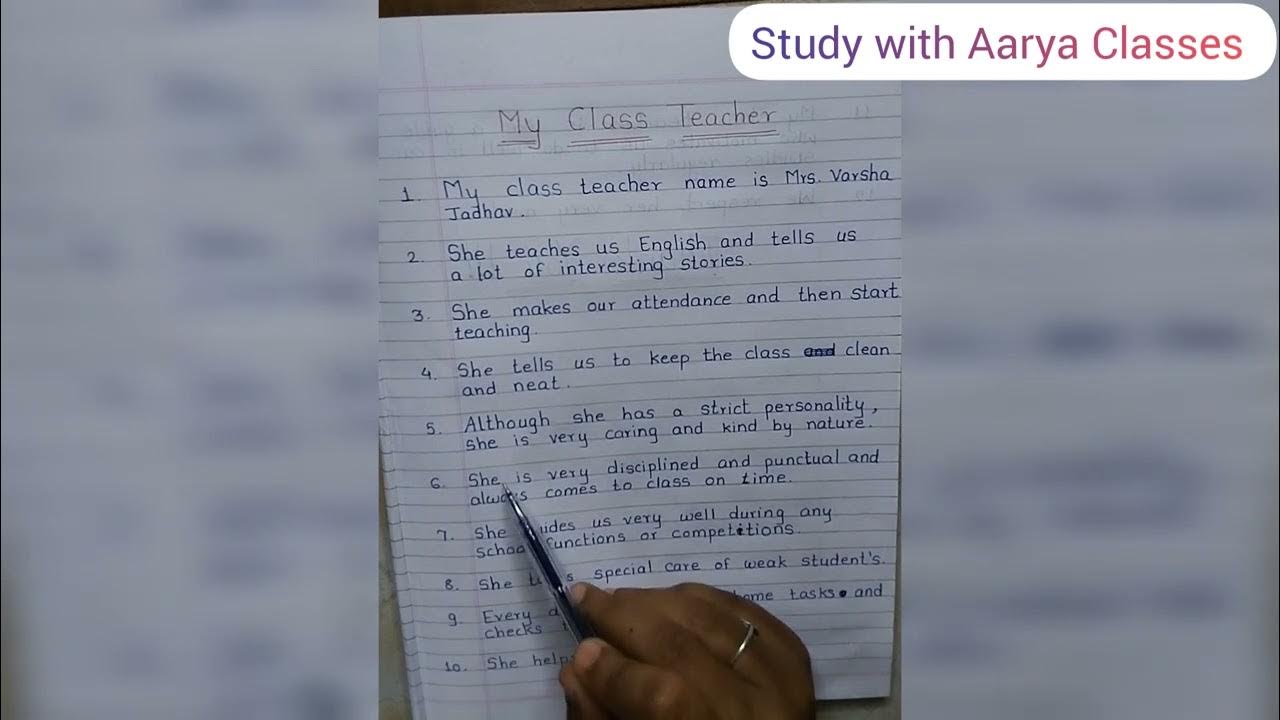 Study with Aarya Classes
My Class Teacher
1. My class teacher name is Mrs. Varsha
Jadhav.
2. She teaches us English and tells us
a lot of interesting stories.
3. She makes our attendance and then start
teaching.
4. She tells us to keep the class and clean
and neat.
5. Although she has a strict personality,
she is very caring and kind by nature.
6. She is very disciplined and punctual and
always comes to class on time.
7. She us very well during any
functions or competitions.
8. She special care of weak student's.
9. Every home tasks. and
checks
10. She